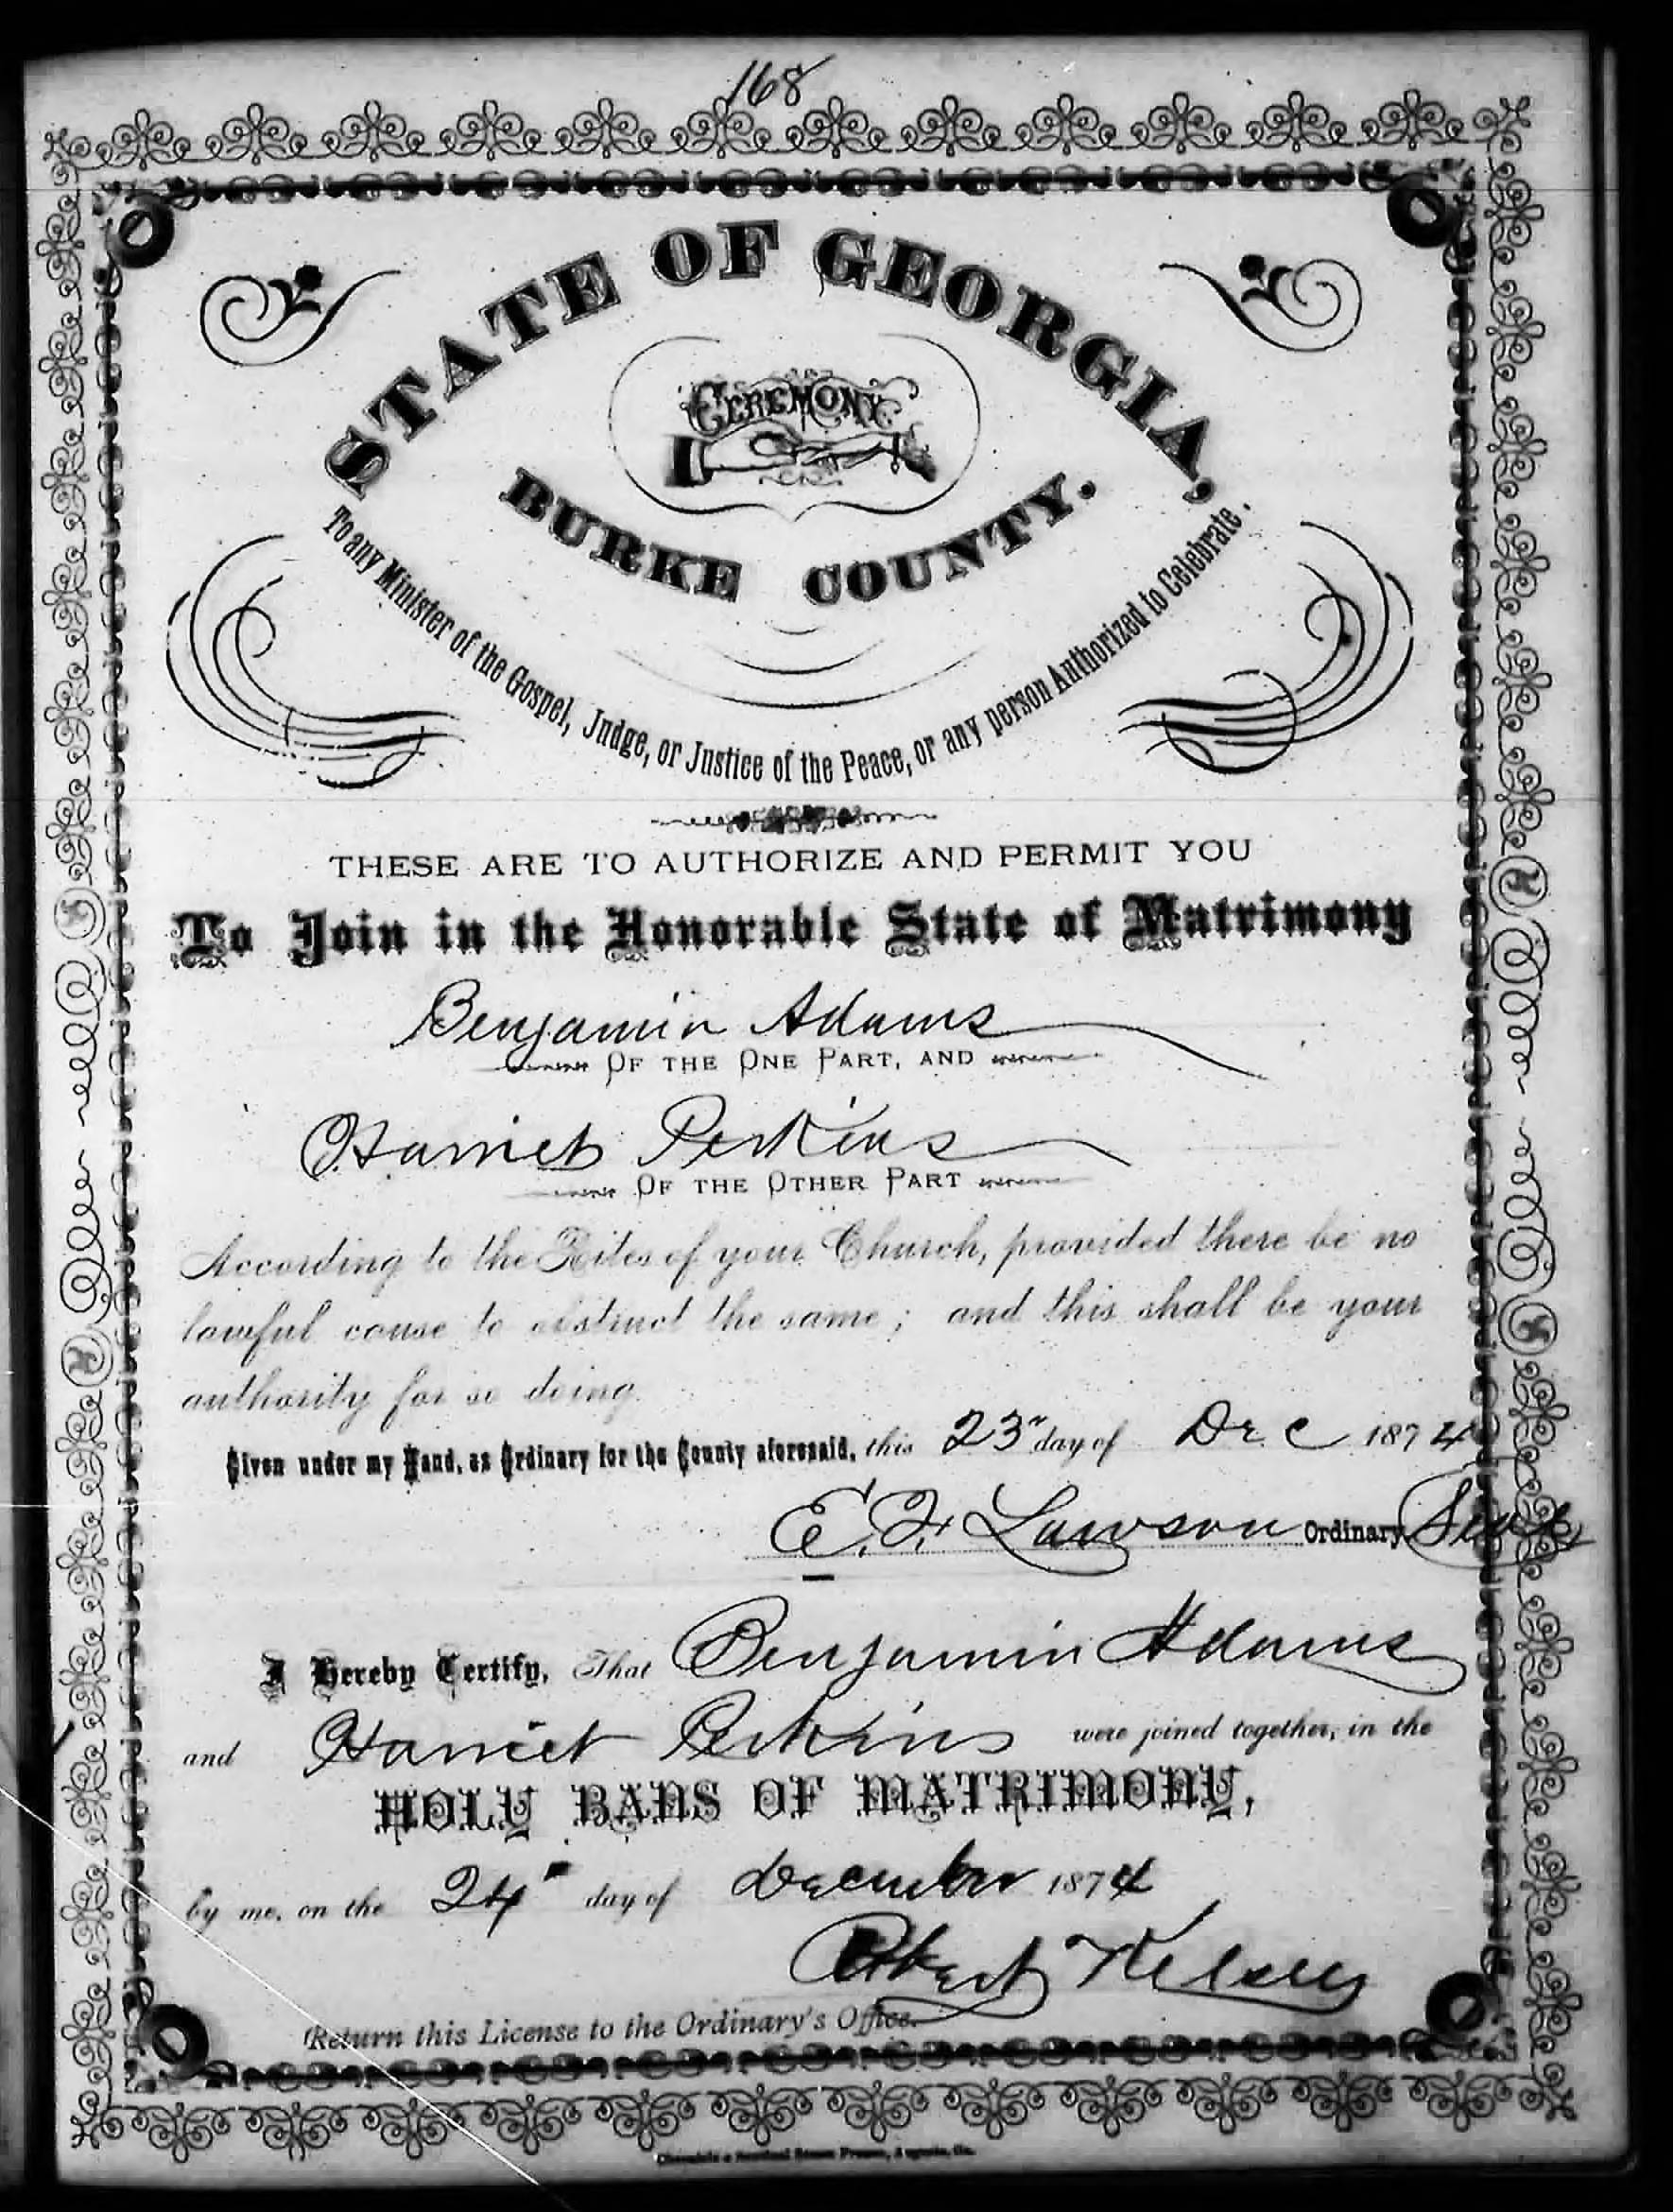 168
STATE OF GEORGIA,
CEREMONY
BURKE COUNTY.
To any Minister of the Gospel, Judge, or Justice of the Peace, or any person Authorized to Celebrate.
THESE ARE TO AUTHORIZE AND PERMIT YOU
To Join in the Honorable State of Matrimony
Benjamin Adams
OF THE ONE PART, AND
Harriet Perkins
OF THE OTHER PART
According to the Rites of your Church, provided there be no
lawful cause to obstruct the same; and this shall be your
authority for so doing.
Given under my Hand, as Ordinary for the County aforesaid, this 23" day of Dec 1874
E. F. Lawson Ordinary Seal
I Hereby Certify, That Benjamin Adams
and Harriet Perkins were joined together, in the
HOLY BANS OF MATRIMONY,
by me, on the 24" day of December 1874
Robert Kelsey
Return this License to the Ordinary's Office.
Chronicle & Sentinel Steam Presses, Augusta, Ga.